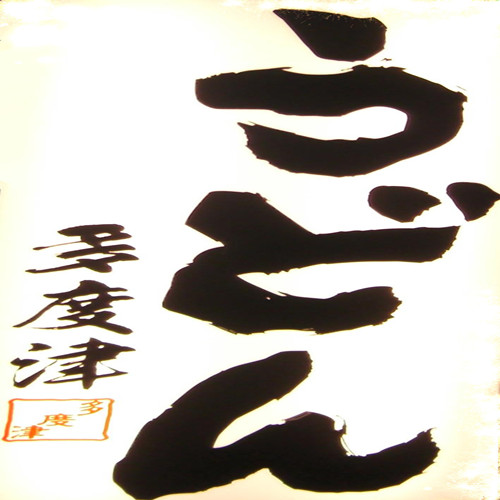 うどん
多度津
多度津